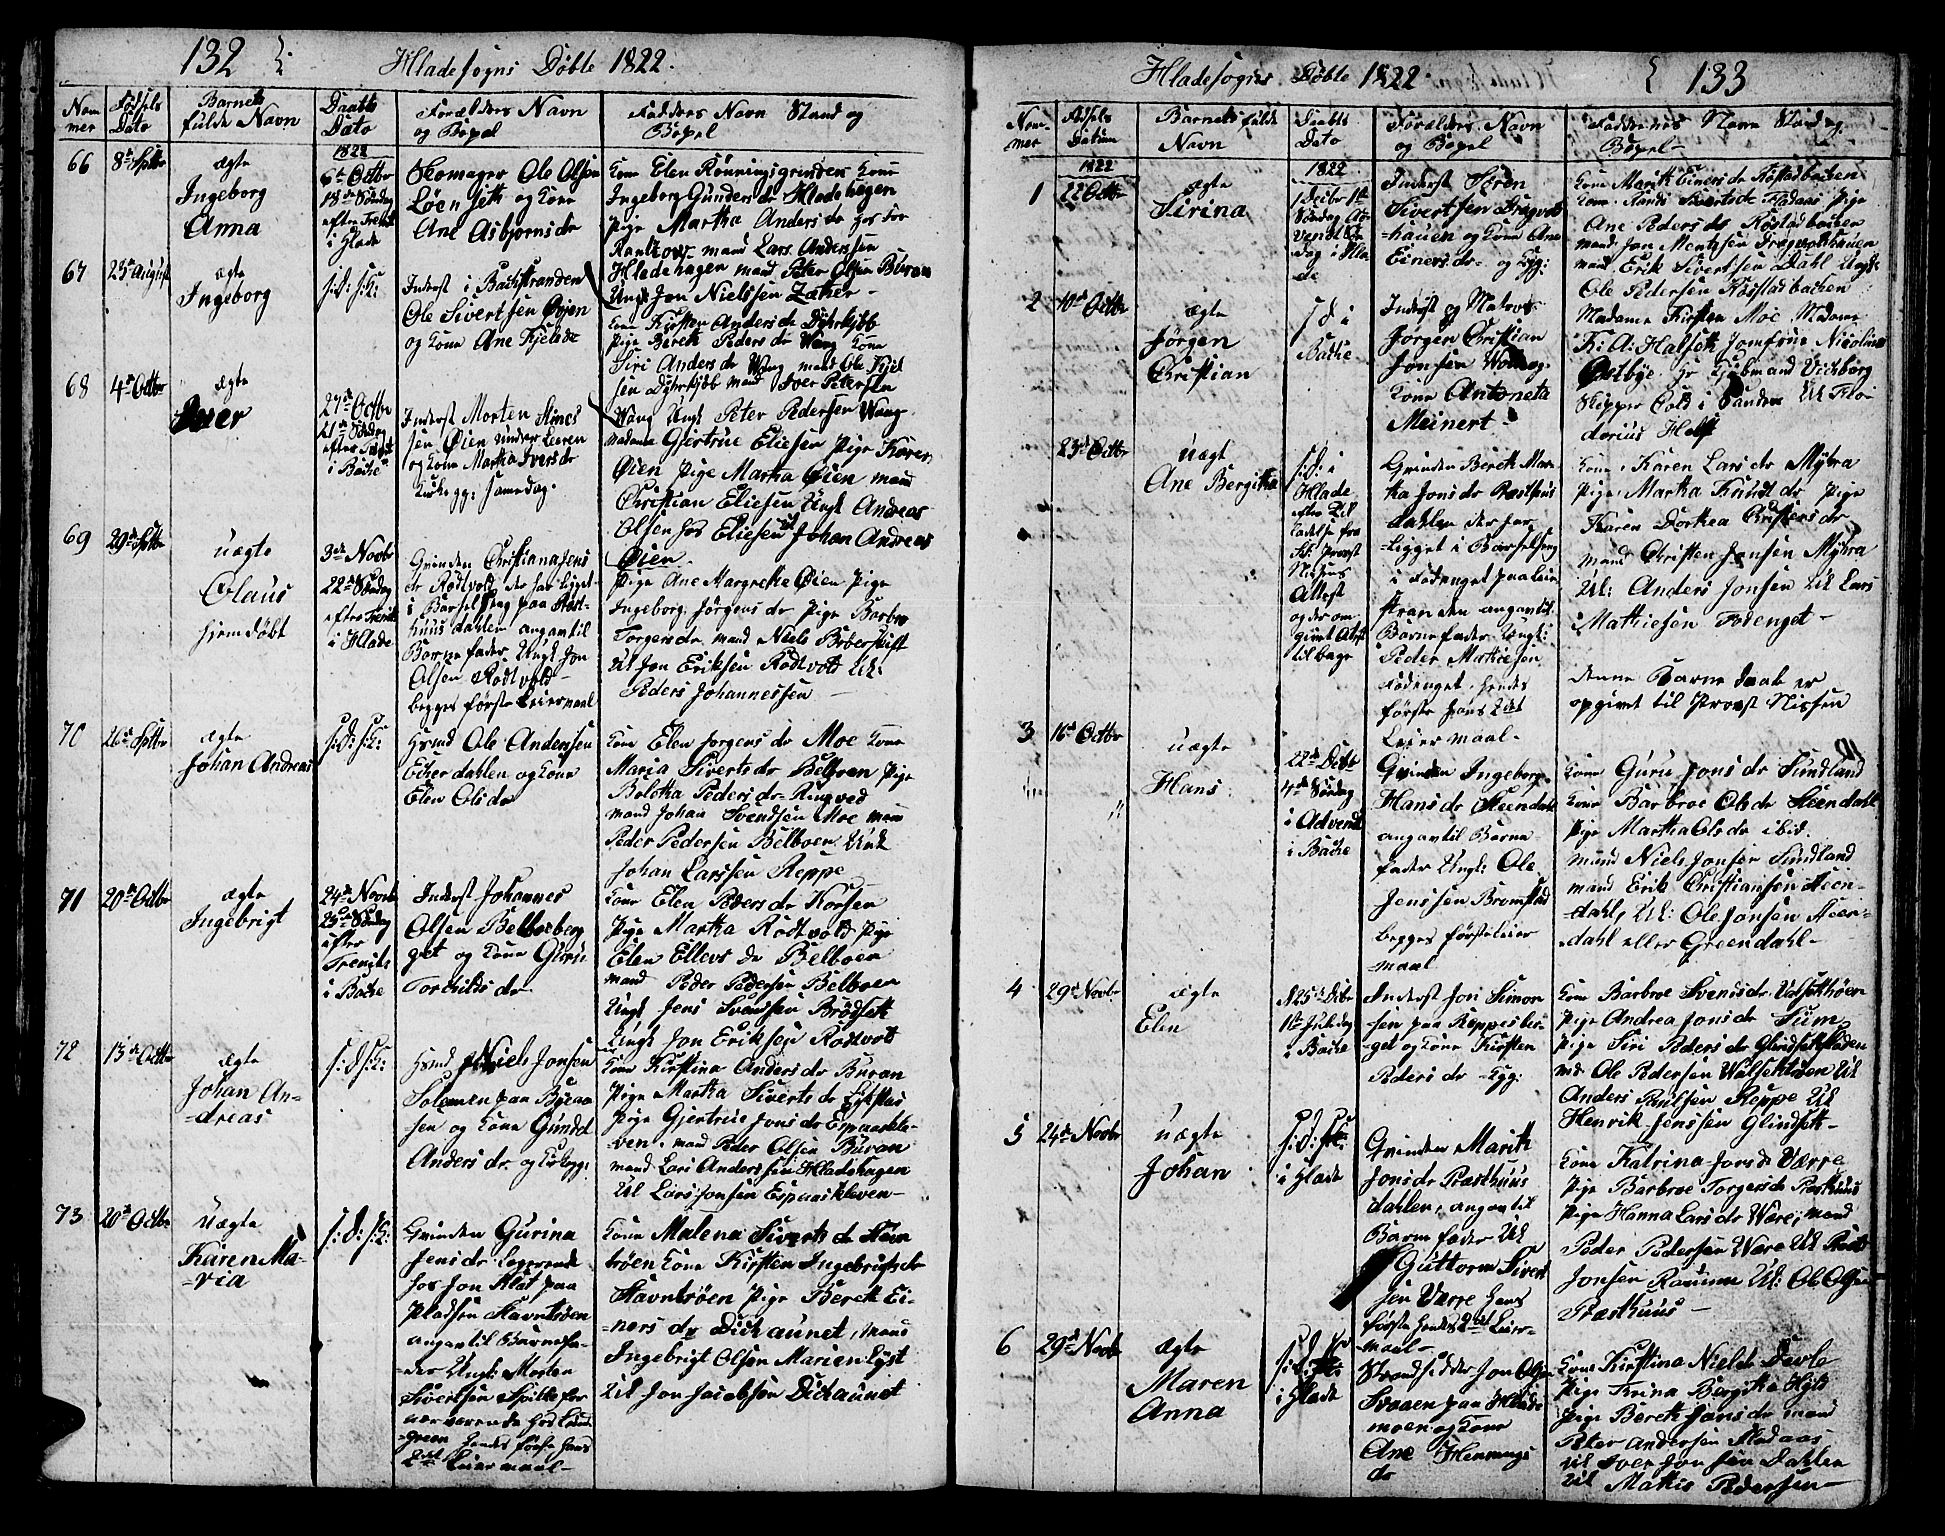 132
Hladesogns Døbte 1822.
Nommer
Fødsels Dato
Barnets fulde Navn
Daabs Dato
Forældres Navn og Bopel
Fadders Navn Stand og Bopel
66
8de Septbr
ægte
Ingeborg
Anna
1822
6te Octbr
18de Søndag
efter Trenit
i Hlade
Skomager Ole Olsen
Løenseth og kone
Ane Asbjørnsdr
Kone Elen Rønningsgrinden Kone
Ingeborg Gundersdr Hladehagen
Pige Martha Andersdr hos
mand Lars Anderssen
Hladehagen mand Peter Olsen Buran
Ungk Jon Nielssen
67
23de August
ægte
Ingeborg
s: D: s: K:
Inderst i Backstranden
Ole Sivertsen Øyen
og kone Ane Kjelsdr
Kone Kjersten Andersdr
Pige Bereth Pedersdr Wang Kone
Siri Andersdr Wang mand Ole Kjel
sen mand Iver Petersen
Wang Ungk Peter Pedersen Wang
68
4de Octbr
ægte
Iver
27de Octbr
21de Søndag
efter Trenit
i Bache
Inderst Morten
sen Øien under Leeren
og kone Martha Iversdr
Kirkegg: samedag.
Madame Gjertrue Eliesen Pige Karen
Øien Pige Martha Øien mand
Christian Eliesen Ungk Andreas
Olsen hos Eliesen Johan Andreas
Øien
69
29de Septbr
uægte
Olaus
hjemdøbt
3de Novbr
22de Søndag
efter Trenit
i Hlade
Qvinden Christiana Jens
dr Rodtvold der har ligget
i Barselseng paa Prest-
huus dahlen angav til
Barnefader Ungk Jon
Olsen Rodtvold
begges første Leiermaal
Pige Ane Margrethe Øien Pige
Ingeborg Jørgensdr Pige Barbro
Torgersdr mand Niels
Uk Jon Eriksen Rodtvolt Uk:
Peders Johannessen
70
26de Septbr
ægte
Johan Andreas
s: D: s: K:
Hsmd Ole Anderssen
Eckerdahlen og kone
Elen Olsdr
Kone Elen Jorgensdr Moe Kone
Maria Sivertsdr Belboen Pige
Boletha Pedersdr Ringved
mand Johan Svendsen Moe mand
Peder Pedersen Belboen Ungk
Johan Larssen Reppe
71
20de Octbr
ægte
Ingebrigt
24de Novbr
25de Søndag
efter
Trenitis
i Bache
Inderst Johannes
Olsen Belboeberg
get og kone Guru
Torchildsdr
Kone Elen Pedersdr Korsen
Pige Martha Rodtvold Pige
Elen Ellevsdr Belboen
mand Peder Pedersen Belboen
Ungk Jens Svendsen Brødseth
Ungk Jon Eriksen Rodtvolt
72
13de Octbr
ægte
Johan An-
dreas
s: D: s: K:
Hsmd Niels Jonsen
Solemen paa Byeaa
sen og kone Gunhl
Andersdr og Kirkegg:
Kone Kirstina Andersdr Buran
Pige Martha Sivertsdr
Pige Gjertrue Jonsdr Espaaskle-
ven mand Peder Olsen Buran
mand Lars Anderssen Hladehagen
Uk Lars Jonsen Espaaskleven
73
20de Octbr
uægte
Karen Ma-
ria
s: D: s: K:
Qvinden Gurina
Jensdr Logerende
hos Jon Klæt paa
Pladsen Havntrøen
angav til Barnefa-
der Ungk: Morten
Sivertsen
nærværende hos
green hendes første hans
2det Leiermaal
Kone Malena Sivertsdr Hem
trøen Kone Kirsten Ingebrigtsdr
Havntrøen Pige Bereth Ei-
nersdr Dickaunet, mand
Ingebrigt Olsen Marienlyst
Uk Jon Jacobsen Dickaunet
Hladesogns Døbte 1822
133
Nommer
Fødsels Datum
Barnets fulde Navn
Daabs Dato
Forældres Navn og Bopel
Faddernes Navn Stand og Bopel
1
1822
22 Octbr
ægte
Sirina
1822
1 Decbr 1te
Søndag Ad-
vent
Dag i Hla
de
Inderst Søren
Sivertsen Dragvolt
hauen og kone Ane
Einersdr og Kgg:
Kone Marith Einersdr Røstadbacken
Kone Randi Sivertsdr Fladaas Pige
Ane Pedersdr Røstadbacken
mand Jon Mentzsen Dragvoldhauen
mand Erik Sivertsen Dahl Ungk:
Ole Pedersen Røstadbacken
2
10de Octbr
ægte
Jørgen
Christian
s d i
Bache
Inderst og Matros
Jørgen Christian
Jonsen og
kone Antoneta
Meinert
Madame Kirsten Moe Madame
K: A: Halseth Jomfrue Nicolina
Østbye Hr Kjøbmand Vichborg
Skipper Told i Uk Flo
dorius
23de Octbr
uægt
Ane Bergitha
s: D: i
Hlade
efter Til
ladelse fra
Hr: Provst
Nissens
Attest
og derom
givet Attest
tilbage
Qvinden Bereth Mar-
tha Jonsdr Presthuus
dahlen der har
ligget i Barselseng
i Fodenget paa Leir
stranden angav til
Barnefader Ungk:
Peder Mathiesen
Fodenget. hendes
første hans 2det
Leiermaal
Kone Karen Larsdr Myhra
Pige Martha Knudtdr Pige
Karen Dorthea Christensdr
mand Christen Jonsen Myhra
Uk: Anders Jonsen Uk Lars
Mathiesen Fodenget
denne Barnedaab er
opgivet til Provst Nissen
3
16de Octbr
uægte
Hans
22de Decbr
4de Søndag
i Advendt
i Bache
Qvinden Ingeborg
Hansdr Steendahl
angav til Barne-
fader Ungk: Ole
Jenssen Bromstad
begges første leier
maal
Kone Guru Jonsdr Sundland
Kone Barbroe Olsdr Steendahl
Pige Martha Olsdr ibid.
mand Niels Jonsen Sundland
mand Erik Christianssen Steen-
dahl, Uk: Ole Jonsen Steen-
dahl eller Greendahl
4
29de Novbr
ægte
Elen
d 25de Decbr
1te Juledag
i Bache
Inderst Jon Simon
sen paa Reppesber-
get og kone Kirsten
Pedersdr Kgg:
Kone Barbroe Svensdr Valsethøen
Pige Andrea Jonsdr Sum
Pige Siri Pedersdr
md Ole Pedersen Valsethøen Uk
Anders Poulsen Reppe Uk
Henrik Jenssen
5
24de Novbr
uægte
Johan
s: d: st:
i Hlade
Qvinden Marith
Jonsdr Presthuus
dahlen, angav til
Barnefader Uk
Guttorm Sivert
sen Værre hans
første hendes 2det Leier-
maal
Kone Katrina Jonsdr Værre
Pige Barbroe Torgersdr Presthuus
Pige Hanna Larsdr Være, mand
Peder Pedersen Være Uk
Jonsen Ranum Uk: Ole Olsen
Præsthuus
6
29de Novbr
ægte
Maren
Anna
s: d:
i Hlade
Strandsidder Jon Olsen
Svaaen paa Hlade
moen og kone
Ane Hemmings
dr
Kone Kirstina Nielsdr Devle
Pige Trina Bergitha
Pige Bereth Jonsdr mand
Peter Andersen Fladaas
Uk Iver Jonsen Dahlen
Uk Mathis Pedersen